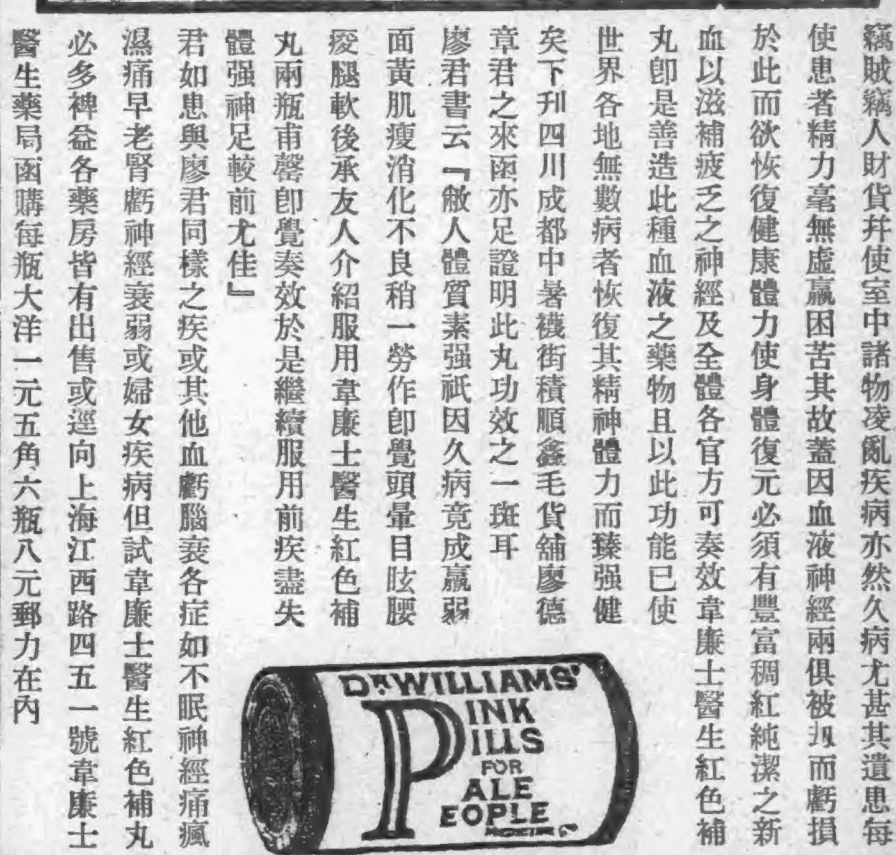 竊賊竊人財貨幷使室中諸物凌亂疾病亦然久病尤甚其遺患每
使患者精力毫無虛羸困苦其故蓋因血液神經兩俱被刄而虧損
於此而欲恢復健康體力使身體復元必須有豐富稠紅純潔之新
血以滋補疲乏之神經及全體各官方可奏效韋廉士醫生紅色補
丸卽是善造此種血液之藥物且以此功能已使
世界各地無數病者恢復其精神體力而臻强健
矣下刋四川成都中暑襪街積順鑫毛貨舖廖德
章君之來函亦足證明此丸功效之一斑耳
廖君書云『敝人體質素强祇因久病竟成羸弱
面黃肌瘦消化不良稍一勞作卽覺頭暈目眩腰
痠腿軟後承友人介紹服用韋廉士醫生紅色補
丸兩瓶甫罄卽覺奏效於是繼續服用前疾盡失
體强神足較前尤佳』
君如患與廖君同樣之疾或其他血虧腦衰各症如不眠神經痛瘋
濕痛早老腎虧神經衰弱或婦女疾病但試韋廉士醫生紅色補丸
必多裨益各藥房皆有出售或逕向上海江西路四五一號韋廉士
醫生藥局函購每瓶大洋一元五角六瓶八元郵力在內
DR WILLIAMS'
PINK
PILLS
FOR
PALE
PEOPLE